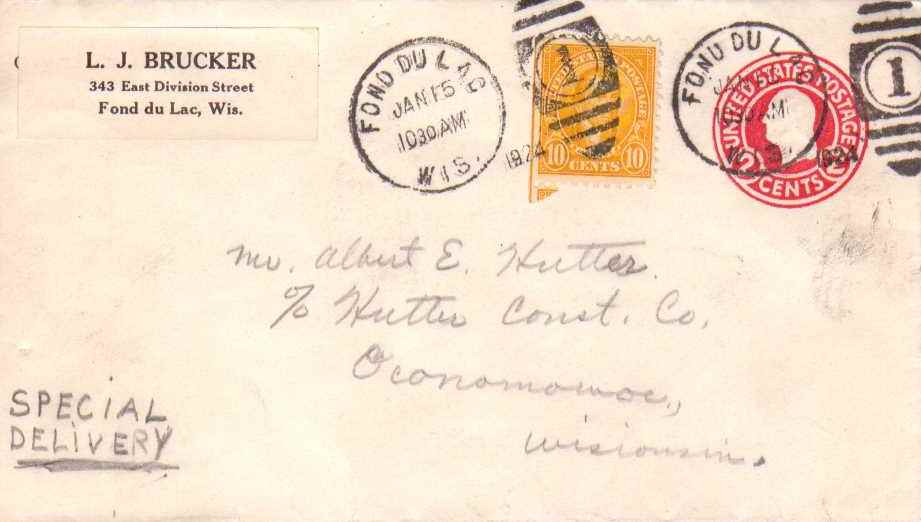 L. J. BRUCKER
343 East Division Street
Fond du Lac, Wis.
FOND DU LAC
JAN 15
1030 AM
WIS.
1924
1
10 CENTS 10
FOND DU LAC
JAN 15
1030 AM
WIS.
1924
1
UNITED STATES POSTAGE
2 CENTS 2
Mr. Albert E. Hutter.
% Hutter Const. Co.
Oconomowoc,
Wisconsin.
SPECIAL
DELIVERY